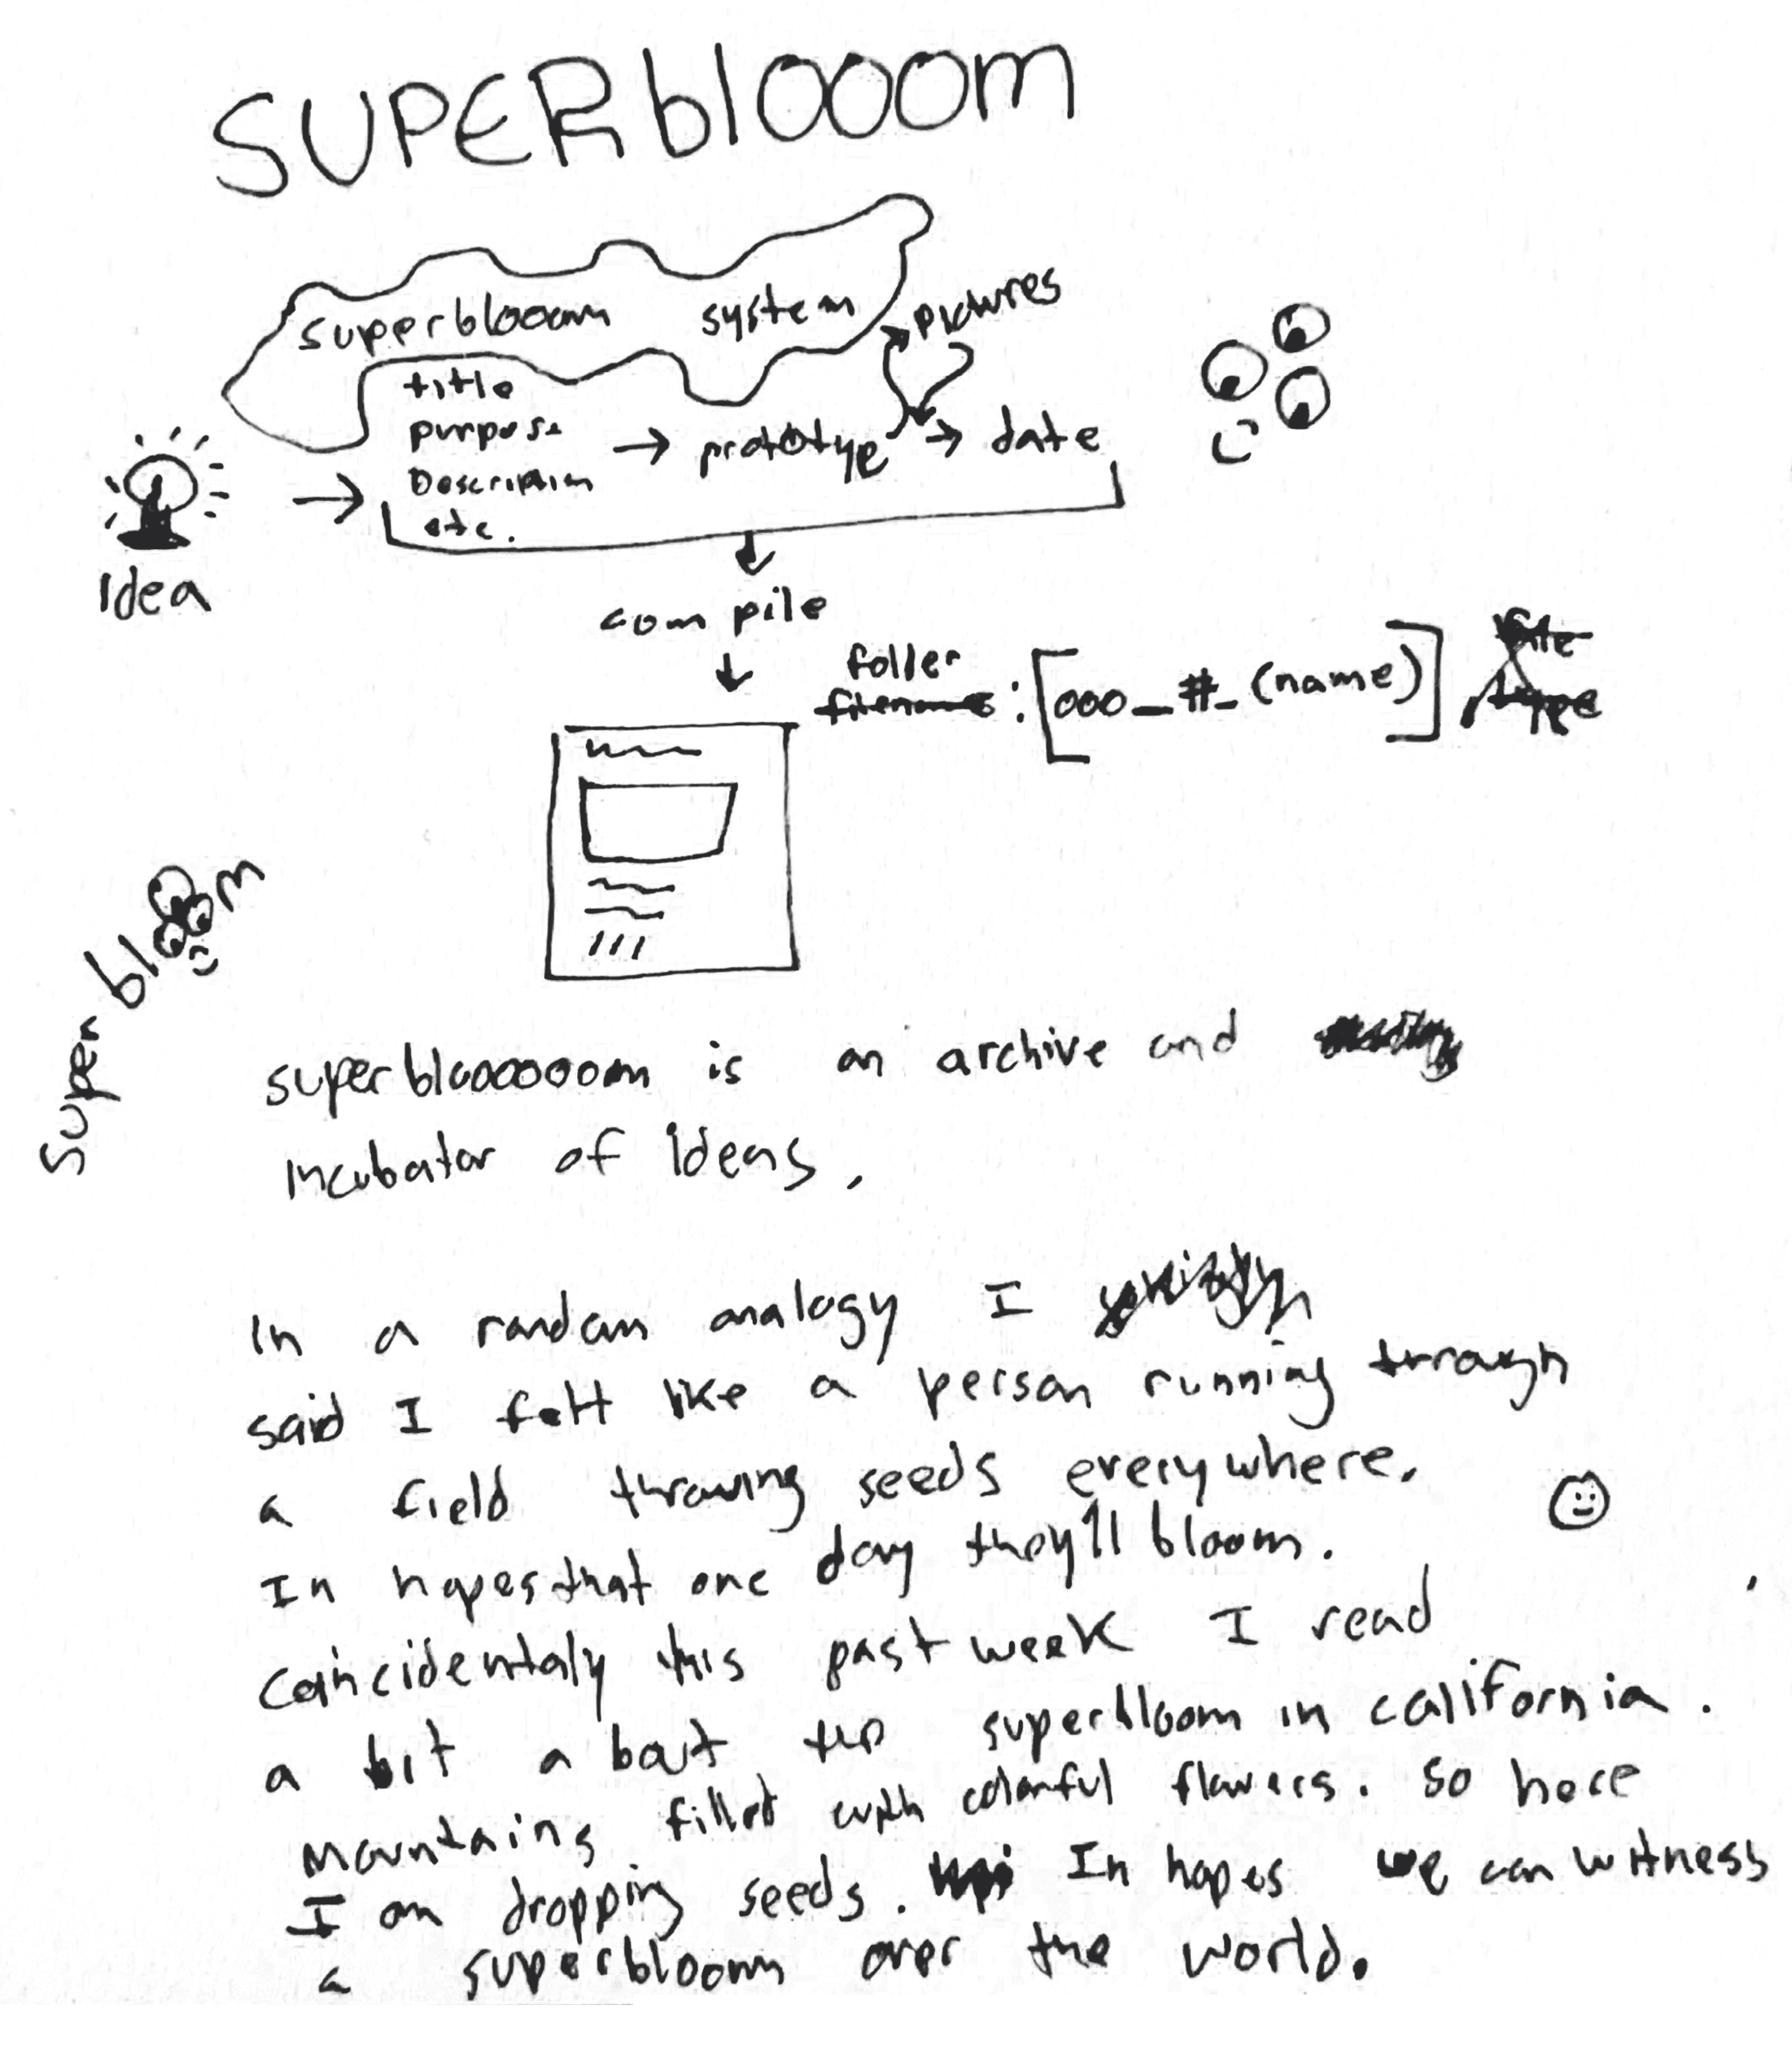 SUPERblooom
superblooom system
pictures
title
purpose
Description
etc.
→ prototype → date
Idea
compile
foller
filename : [000_#_(name)] file type
Super blooom
superblooooooom is an archive and
Incubator of ideas.
In a random analogy I
said I felt like a person running through
a field throwing seeds everywhere.
In hopes that one day they'll bloom.
coincidentaly this past week I read
a bit about the superbloom in california.
Mountains filled with colorful flowers. So here
I am dropping seeds. In hopes we can witness
a superbloom over the world.